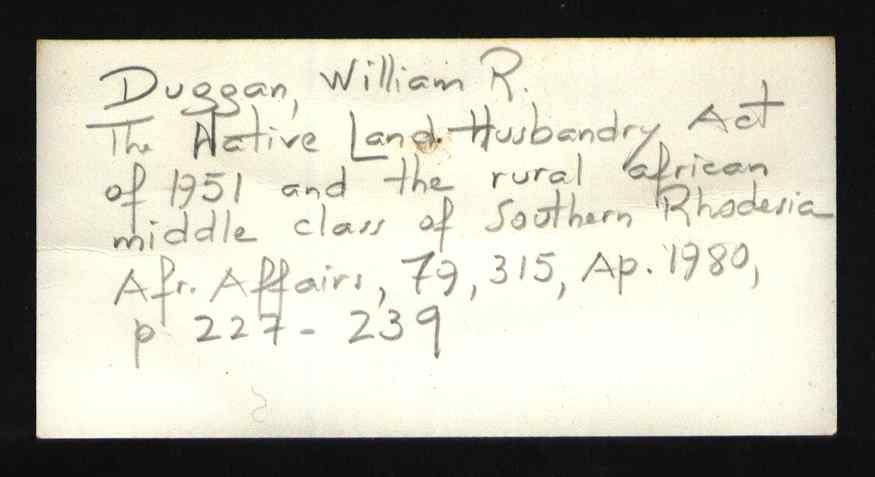 Duggan, William R.
The Native Land Husbandry Act
of 1951 and the rural african
middle class of Southern Rhodesia
Afr. Affairs, 79, 315, Ap. 1980,
p 227-239